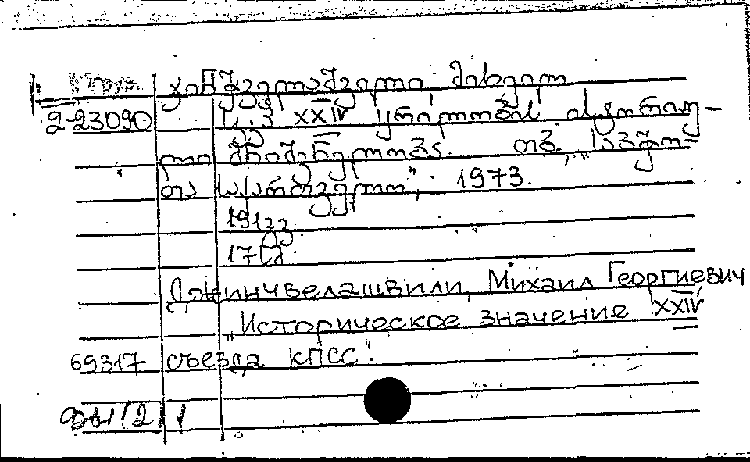 ჯინჭველაშვილი, მიხეილ
2-23090 სკკპ XXIV ყრილობის ისტორიუ-
ლი მნიშვნელობა. თბ. „საბჭო-
თა საქართველო", 1973.
191 გვ
17 მ
Джинчвелашвили, Михаил Георгиевич
„Историческое значение XXIV
69317 съезда КПСС".